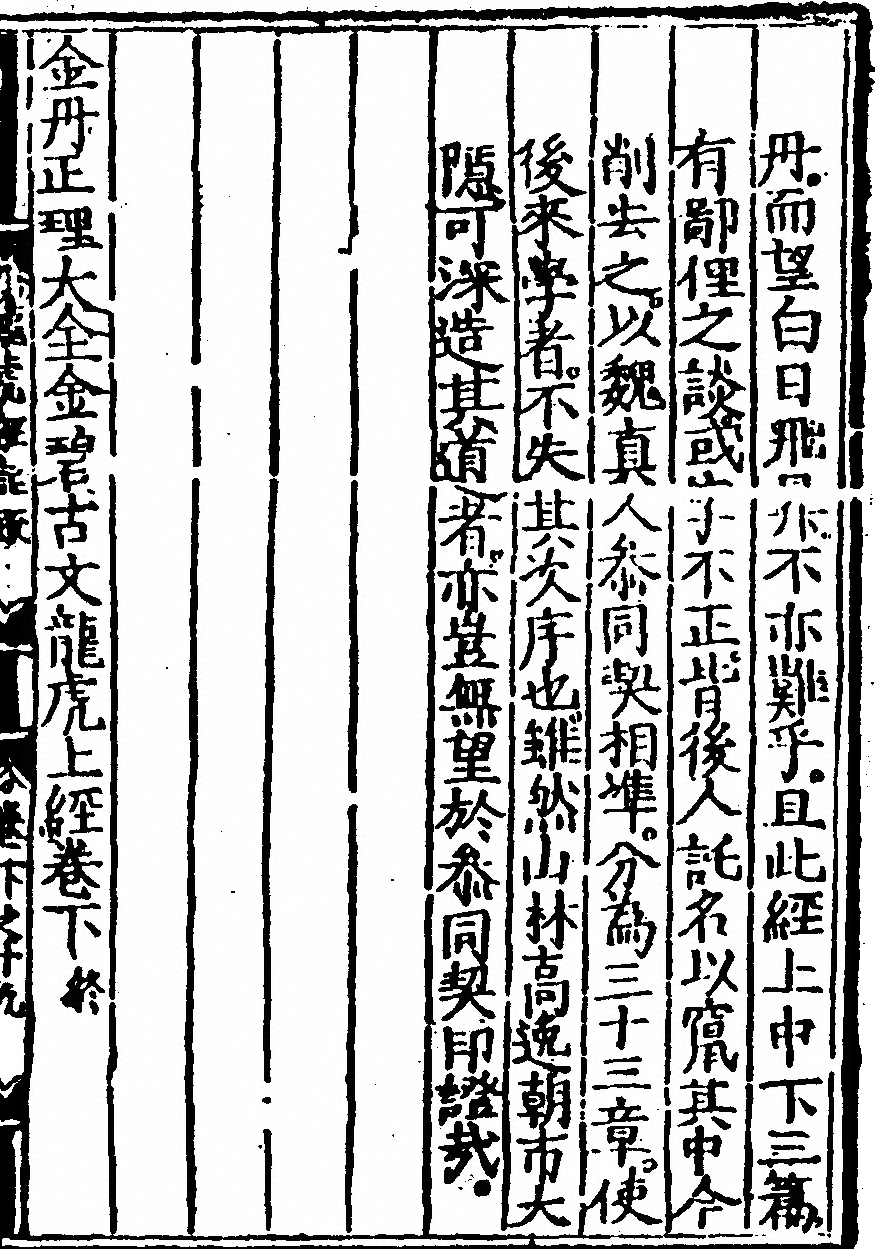 丹。而望白日飛昇。不亦難乎。且此經上中下三篇。
有鄙俚之談或文字不正皆後人託名以竄其中今
削去之。以魏真人叅同契相準。分為三十三章。使
後來學者。不失其次序也。雖然山林高逸朝市大
隱可深造其道者。亦豈無望於叅同契印證哉。
金丹正理大全金碧古文龍虎上經卷下 終